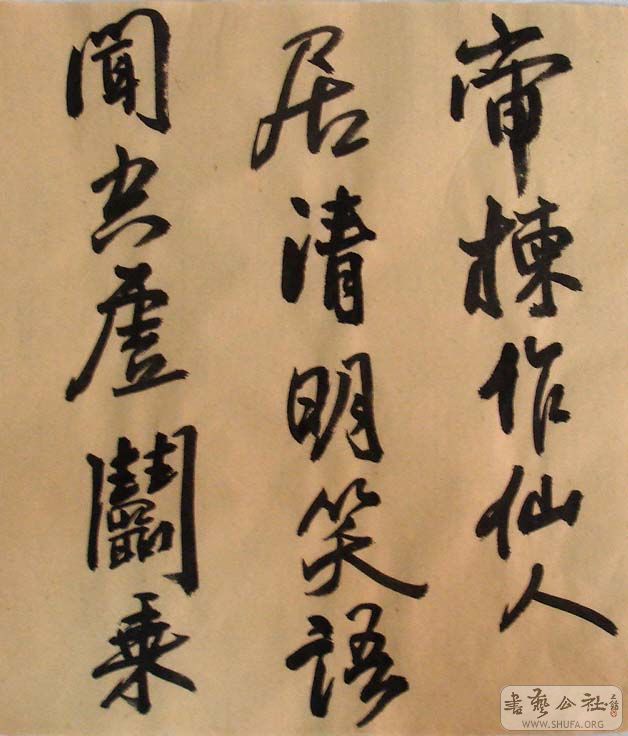 作仙人
居清明笑語
聞空虛鬪乘
書藝公社
WWW.SHUFA.ORG